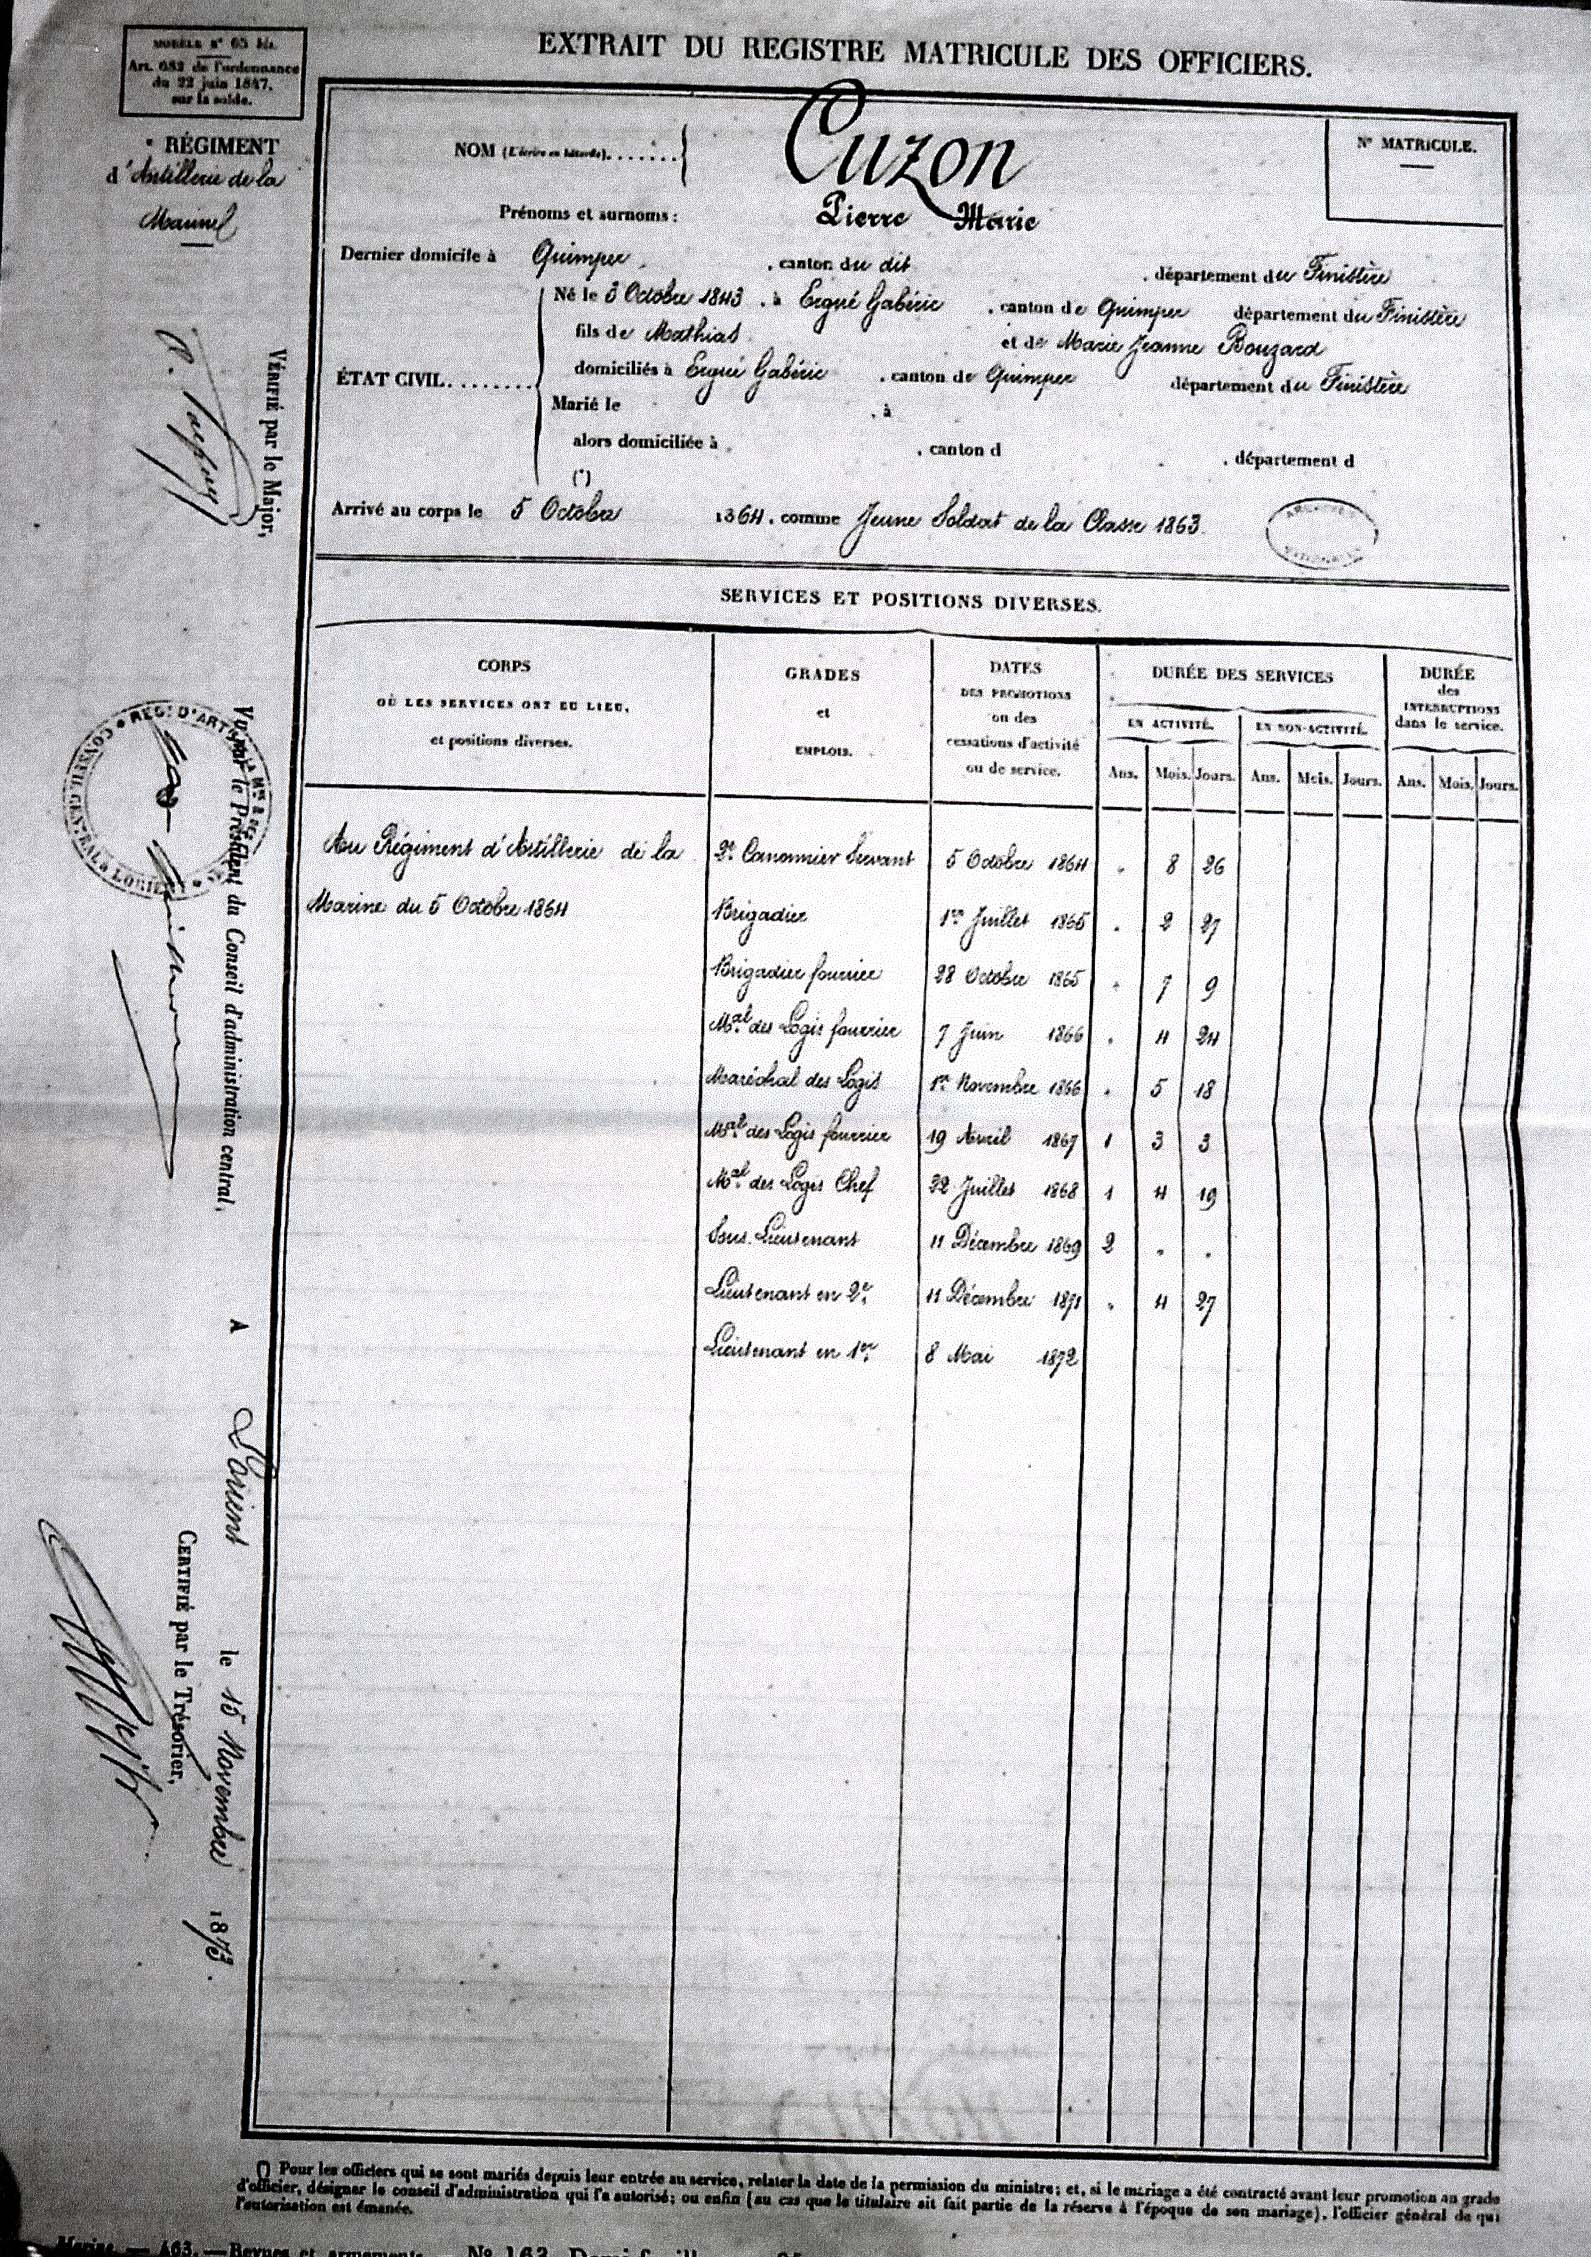 EXTRAIT DU REGISTRE MATRICULE DES OFFICIERS.
MODÈLE N° 65 bis.
Art. 652 de l'ordonnance
du 22 juin 1847,
sur la solde.
RÉGIMENT
d'Artillerie de la
Marine
NOM (L'écrire en bâtarde)....... Cuzon
N° MATRICULE.
Prénoms et surnoms : Pierre Marie
Dernier domicile à Quimper, canton du dit, département du Finistère
Né le 3 Octobre 1843, à Ergué Gabéric, canton de Quimper département du Finistère
fils de Mathias et de Marie Jeanne Bouzard
ÉTAT CIVIL........ domiciliés à Ergué Gabéric, canton de Quimper département du Finistère
Marié le , à
alors domiciliée à , canton d , département d
(*)
Arrivé au corps le 5 Octobre 1864, comme Jeune Soldat de la Classe 1863.
SERVICES ET POSITIONS DIVERSES.
CORPS
OÙ LES SERVICES ONT EU LIEU,
et positions diverses.
GRADES
et
EMPLOIS.
DATES
DES PROMOTIONS
ou des
cessations d'activité
ou de service.
DURÉE DES SERVICES
EN ACTIVITÉ. EN NON-ACTIVITÉ.
DURÉE
des
INTERRUPTIONS
dans le service.
Ans. Mois. Jours. Ans. Mois. Jours. Ans. Mois. Jours.
Au Régiment d'Artillerie de la 2e Canonnier Servant 5 Octobre 1864 " 8 26
Marine du 5 Octobre 1864 Brigadier 1er Juillet 1865 " 2 27
Brigadier fourrier 28 Octobre 1865 " 7 9
Mal des Logis fourrier 7 Juin 1866 " 4 24
Maréchal des Logis 1er Novembre 1866 " 5 18
Mal des Logis fourrier 19 Avril 1867 1 3 3
Mal des Logis Chef 22 Juillet 1868 1 4 19
Sous Lieutenant 11 Décembre 1869 2 " "
Lieutenant en 2e 11 Décembre 1871 " 4 27
Lieutenant en 1er 8 Mai 1872
VÉRIFIÉ par le Major,
Vu par le Président du Conseil d'administration central,
CONSEIL CENTRAL à LORIENT
A Lorient le 15 Novembre 1873.
CERTIFIÉ par le Trésorier,
(*) Pour les officiers qui se sont mariés depuis leur entrée au service, relater la date de la permission du ministre; et, si le mariage a été contracté avant leur promotion au grade
d'officier, désigner le conseil d'administration qui l'a autorisé; ou enfin (au cas que le titulaire ait fait partie de la réserve à l'époque de son mariage), l'officier général de qui
l'autorisation est émanée.
Marine. — 463. — Revues et armements. — N° 163